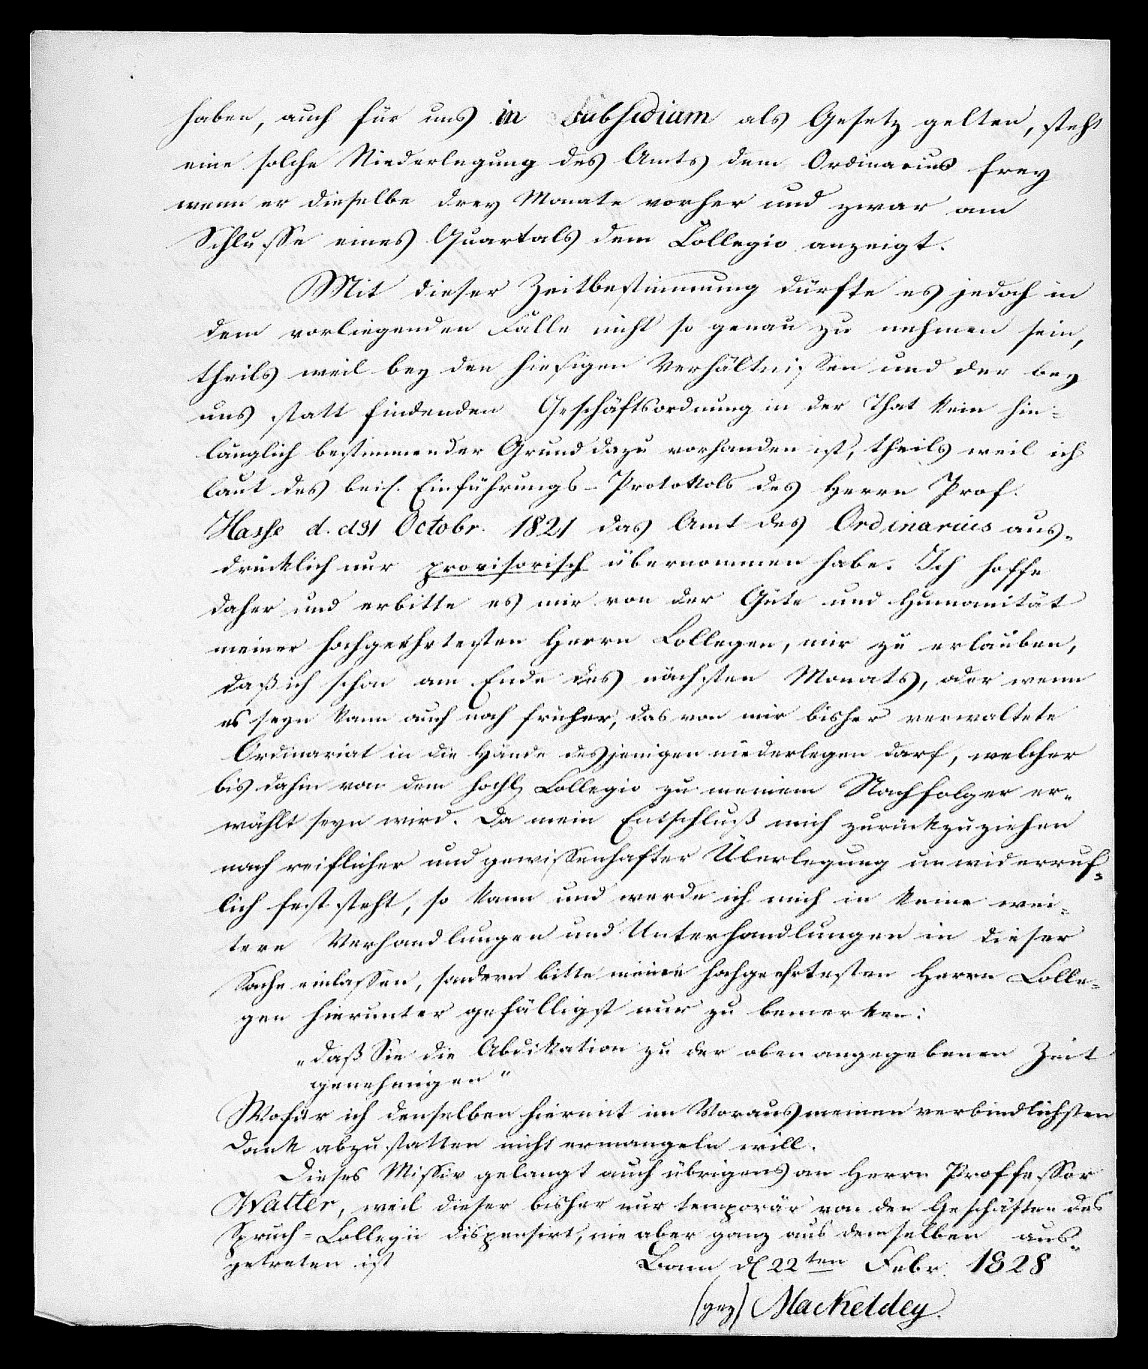 haben, auch für uns in Subsidiam als Gesetz gelten, steht
eine solche Niederlegung des Amts dem Ordinarius frey
wenn er dieselbe drey Monate vorher und zwar am
Schlusse eines Quartals dem Collegio anzeigt.
Mit dieser Zeitbestimmung dürfte es jedoch in
dem vorliegenden Falle nicht so genau zu nehmen sein,
theils weil bey den hiesigen Verhältnissen und der bey
uns statt findenden Geschäftsordnung in der That kein hin-
länglich bestimmender Grund dazu vorhanden ist, theils weil ich
laut des beil. Einführungs-Protokols des Herrn Prof.
Hasse d. d 31 Octobr. 1821 das Amt des Ordinarius aus-
drücklich nur provisorisch übernommen habe. Ich hoffe
daher und erbitte es mir von der Güte und Humanität
meiner hochgeehrtesten Herrn Collegen, mir zu erlauben,
daß ich schon am Ende des nächsten Monats, oder wenn
es seyn kann auch noch früher, das von mir bisher verwaltete
Ordinariat in die Hände desjenigen niederlegen darf, welcher
bis dahin von dem hochl. Collegio zu meinem Nachfolger er-
wählt seyn wird. Da mein Entschluß mich zurückzuziehen
nach reiflicher und gewissenhafter Überlegung unwiderruf-
lich fest steht, so kann und werde ich mich in keine wei-
tere Verhandlungen und Unterhandlungen in dieser
Sache einlassen, sondern bitte meine hochgeehrtesten Herrn Colle-
gen hierunter gefälligst nur zu bemerken:
„daß Sie die Abdikation zu der oben angegebenen Zeit
genehmigen"
Wofür ich denselben hiermit im Voraus meinen verbindlichsten
Dank abzustatten nicht ermangeln will.
Dieses Missiv gelangt auch übrigens an Herrn Proffessor
Walter, weil dieser bisher nur temporär von den Geschäften des
Spruch-Collegii dispensirt, nie aber ganz aus demselben aus-
getreten ist
Bonn d 22ten Febr. 1828
(gez) Mackeldey.